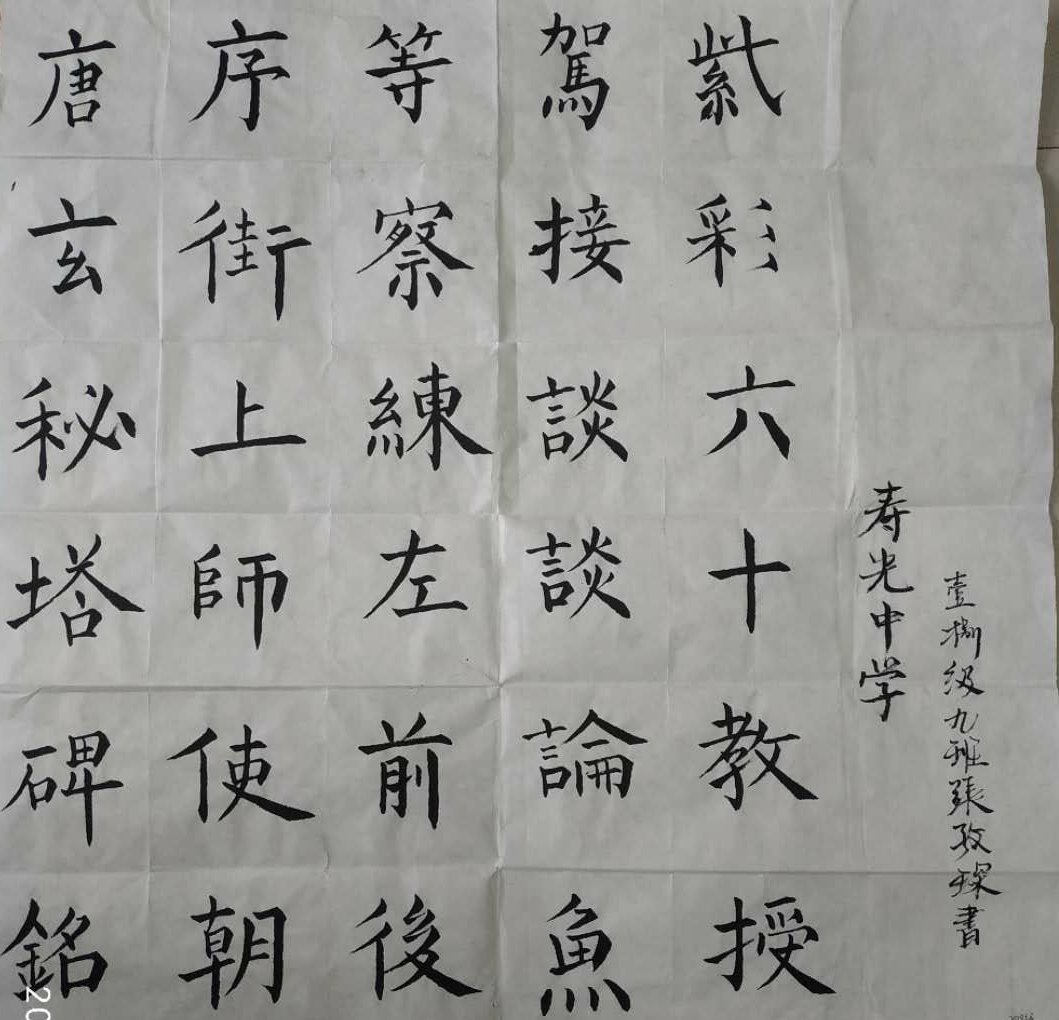 唐玄秘塔碑銘
序街上師使朝
等察練左前後
駕接談談論魚
紫彩六十教授
寿光中学
壹捌级九班張孜琛書
20